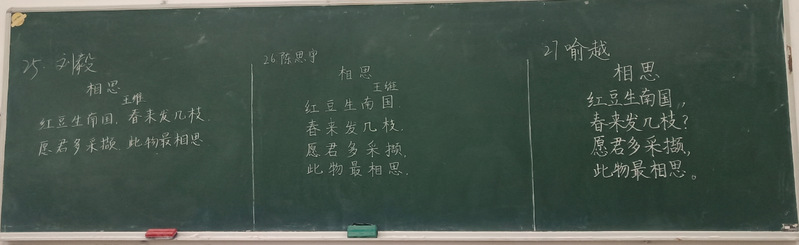 25. 刘毅
相思
王维
红豆生南国, 春来发几枝.
愿君多采撷. 此物最相思
26.陈思宇
相思
王维
红豆生南国
春来发几枝.
愿君多采撷
此物最相思.
27 喻越
相思
红豆生南国,
春来发几枝?
愿君多采撷,
此物最相思。